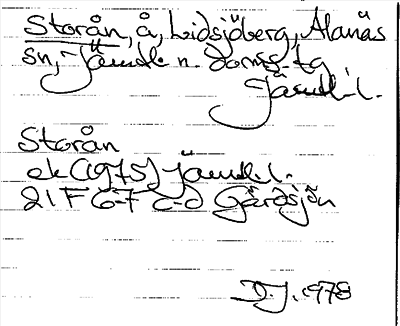 Storån, å, Lidsjöberg, Alanäs
sn, Jämtl. n. doms. tg
Jämtl. l.
Storån
ek (1975) Jämtl. l.
21 F 6-7 c-d Gärdsjön
D.J. 1978